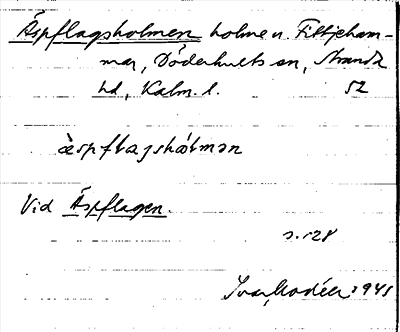 Äspflagsholmen holme n. Fittjeham-
mar, Döderhults sn, Stranda
hd, Kalm. l. 52
äspflagshålmən
Vid Äspflagen.
s. 128
Ivar Modéer 1941